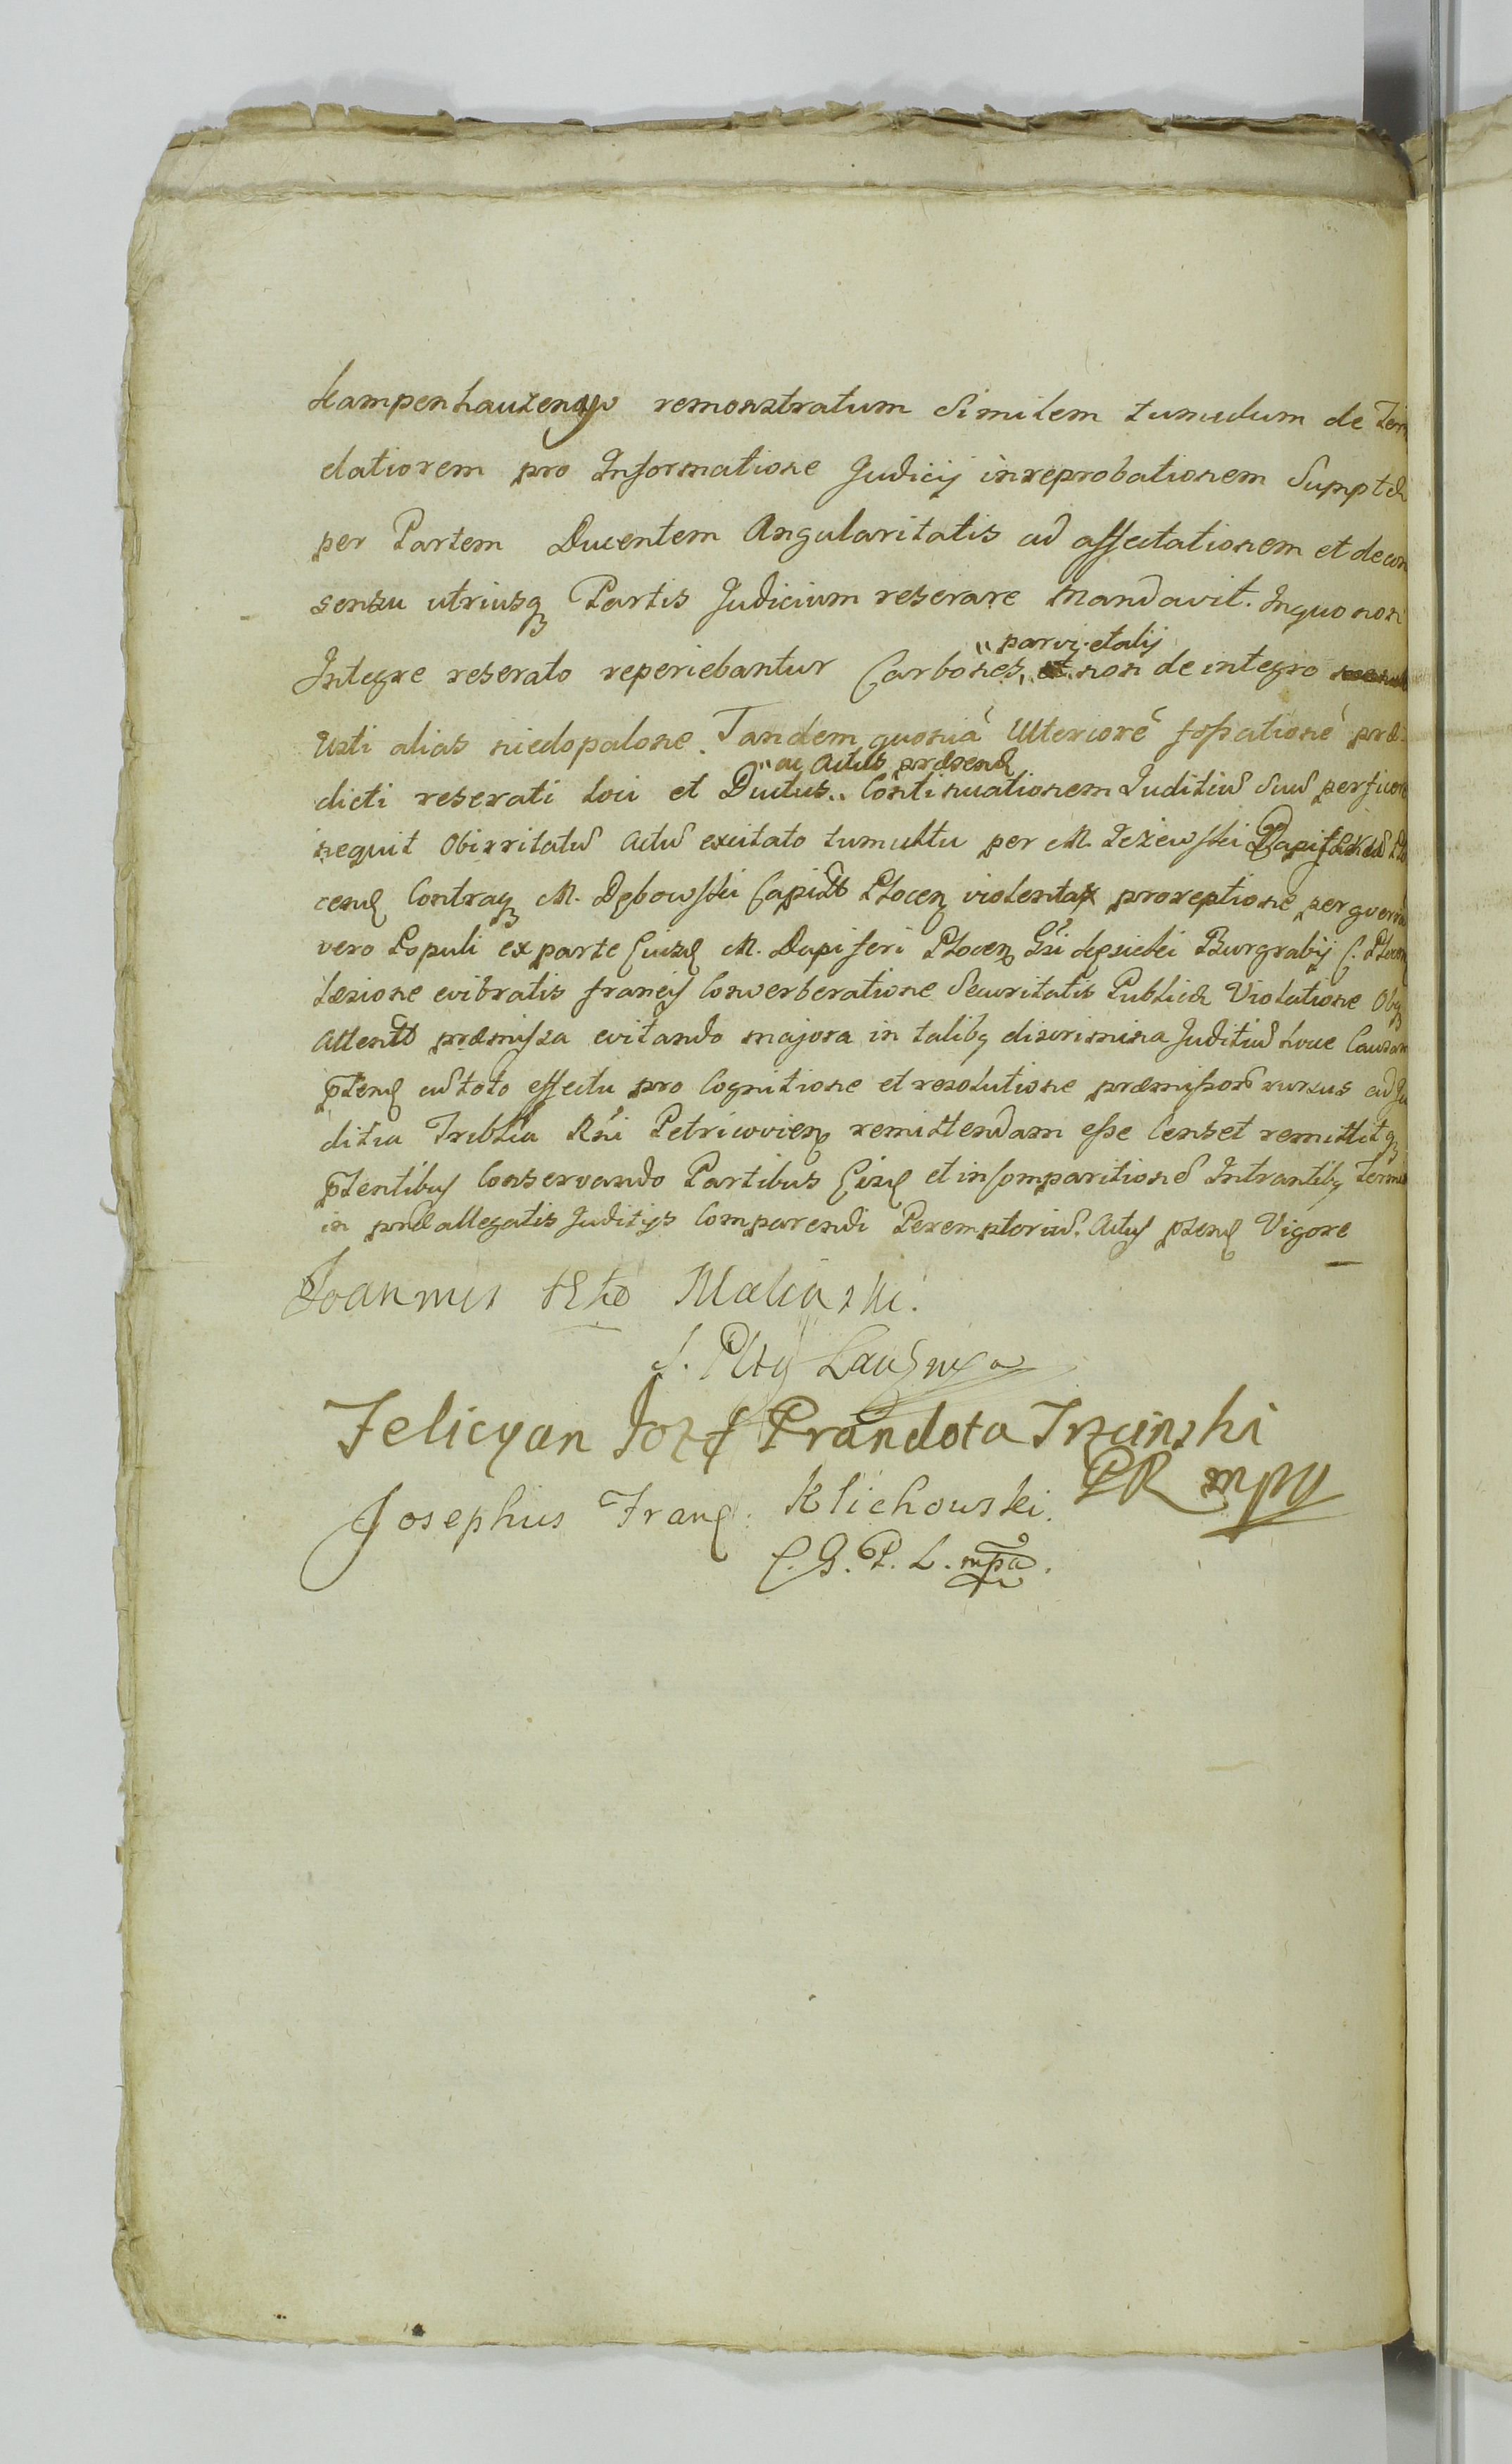 Kampenhauzenow remonstratum Similem tumulum de
elatiorem pro Informatione Judicij inreprobationem Sumptæ
per Partem Ducentem Angularitatis ad affectationem et de con
sensu utriusq Partis Judicium reserare Mandavit. Inquo non
parvi et alij
Integre reserato reperiebantur Carbones, non de integro
usti alias niedopalone. Tandem quoniā Ulteriorē fossationē præ-
ac Actus præsen
dicti reserati loci et Ductus. Continuationem Juditiū Suū perficere
nequit Obirritatū Actū excitato tumultu per M. Jeżewski
cens Contraq M. Dębowski Capitt Plocen violenta proreptione per
vero Populi ex parte Ejusd M. Dapiferi Plocen Gsi Burgrabij C. Plocen
Læsione evibratis frameis Converberatione Securitatis Publicæ Violatione Obq
Attentt præmissa evitando majora in talibq discrimina Juditiū hocce Causam
ptem cū toto effectu pro Cognitione et resolutione præmissorū rursus ad Ju
ditia Triblia Rni Petricovien remittendam esse Censet remittitq
ptentibus Conservando Partibus Eisd et in Comparitione Intrantibq Termin
in præallegatis Juditijs Comparendi Peremptoriū. Actus ptens Vigore
Joannes Maliński.
Felicyan Jozef Prandota Trzciński
PR mpp
Josephus Franc. Klichowski.
C. G. P. L. mpa.